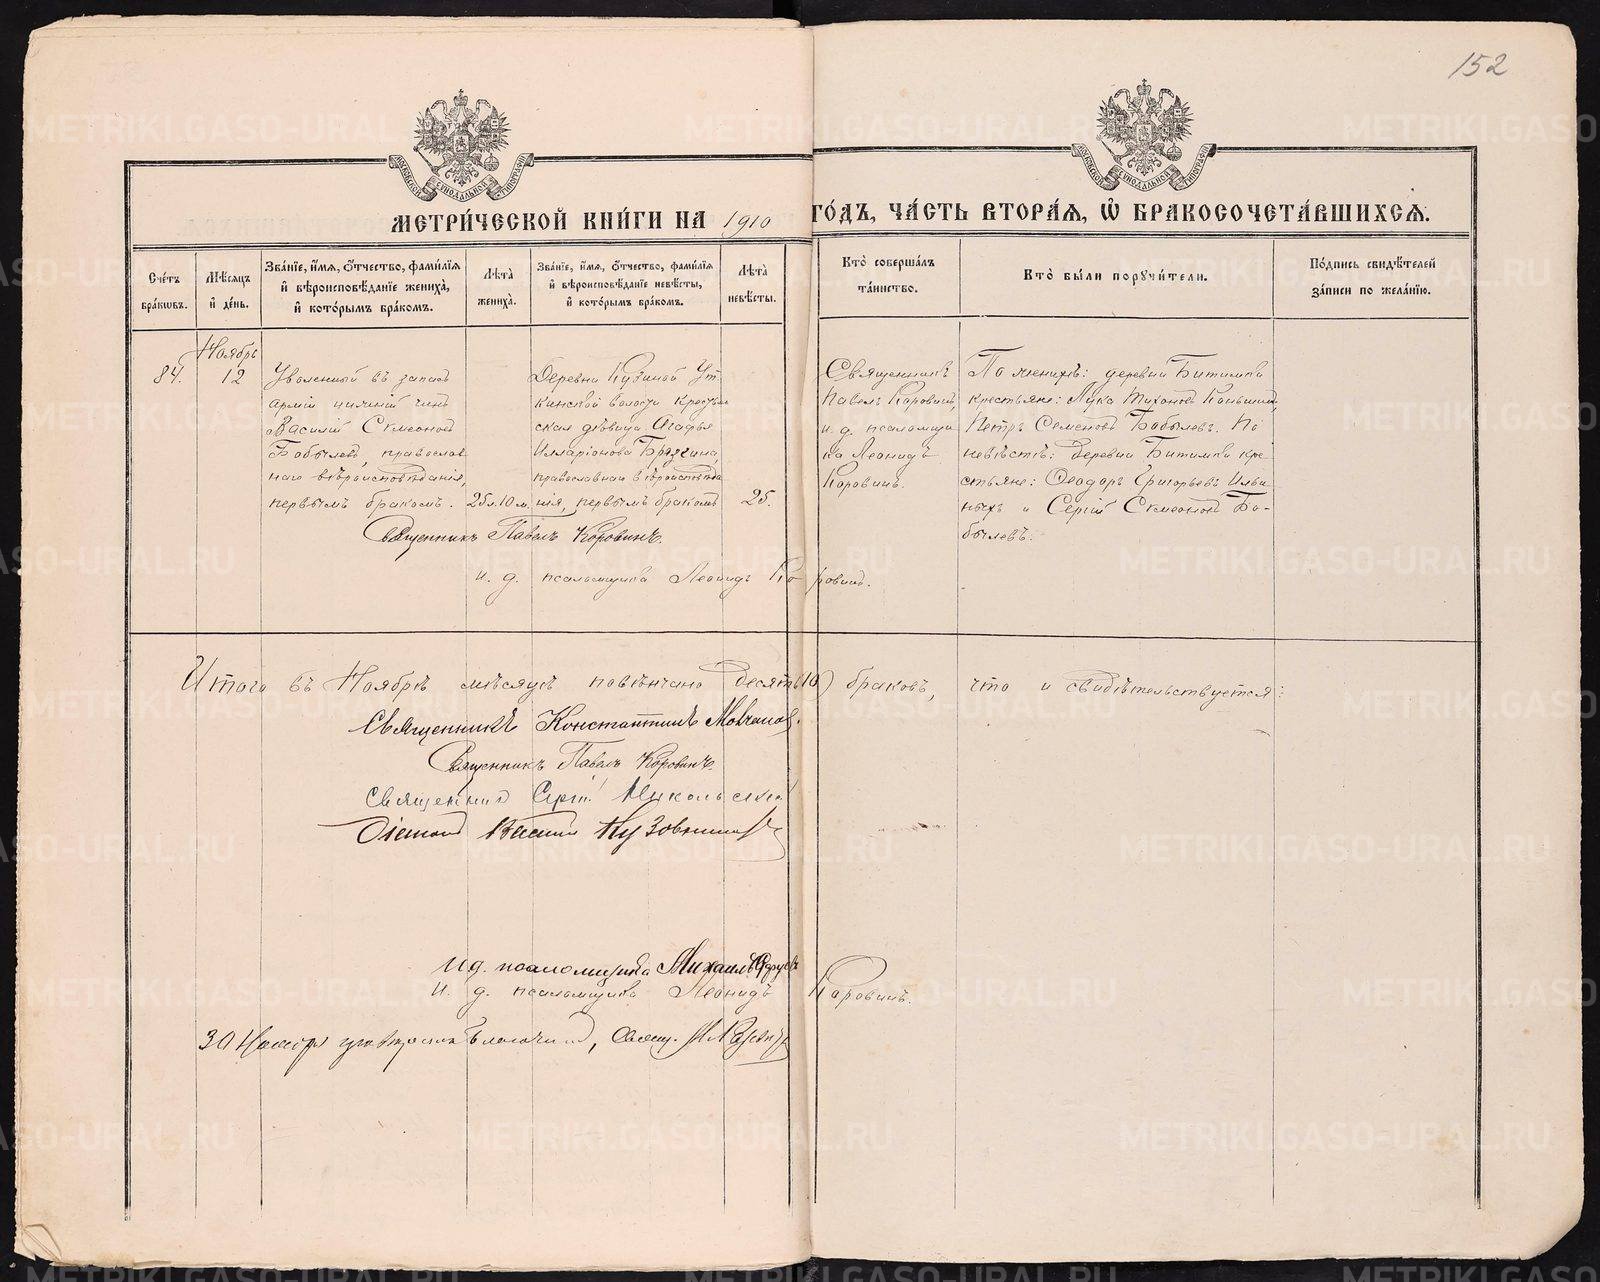 152
МЕТРИ́ЧЕСКОЙ КНИ́ГИ НА 1910 ГО́ДЪ, ЧА́СТЬ ВТОРА́Я, Ѽ БРАКОСОЧЕТА́ВШИХСЯ.
Сче́тъ бра́кѡвъ.
Мѣ́сяцъ и҆ де́нь.
Зва́нїе, и҆́мя, ѻ҆́тчество, фамилїя и҆ вѣроисповѣ́данїе жениха̀, и҆ кото́рымъ бра́комъ.
Лѣ́та жениха̀.
Зва́нїе, и҆́мя, ѻ҆́тчество, фамилїя и҆ вѣроисповѣ́данїе невѣ́сты, и҆ кото́рымъ бра́комъ.
Лѣ́та невѣ́сты.
Кто̀ соверша́лъ та́инство.
Кто̀ бы́ли порꙋчи́тели.
По́дпись свидѣ́телей за́писи по жела́нїю.
84.
Ноябрь
12
Уволенный въ запасъ
арміи нижній чинъ
Василій Симеоновъ
Бобылевъ, православ
наго вѣроисповѣданія,
первымъ бракомъ.
25 л. 10 м.
Деревни Кузиной Ут
кинской волости крестьян
ская дѣвица Агафья
Илларіонова Брязгина,
православнаго вѣроисповѣда
нія, первымъ бракомъ
25.
Священникъ
Павелъ Коровинъ,
и. д. псаломщи
ка Леонидъ
Коровинъ.
По женихѣ: деревни Битимки
крестьяне: Лука Тихоновъ Коньшинъ,
Петръ Семеновъ Бобылевъ. По
невѣстѣ: деревни Битимки кре
стьяне: Ѳеодоръ Григорьевъ Ильи
ныхъ и Сергій Симеоновъ Бо-
былевъ.
Священникъ Павелъ Коровинъ.
и. д. псаломщика Леонидъ Коровинъ.
Итого въ Ноябрѣ мѣсяцѣ повѣнчано десять (10) браковъ, что и свидѣтельствуется:
Священникъ Константинъ Мовчанов.
Священникъ Павелъ Коровинъ.
Священникъ Сергій Никольскій
Діаконъ Василій Кузовников
И.д. псаломщика Михаилъ
И. д. псаломщика Леонидъ Коровинъ.
30 Ноября благочинный, свящ.
METRIKI.GASO-URAL.RU